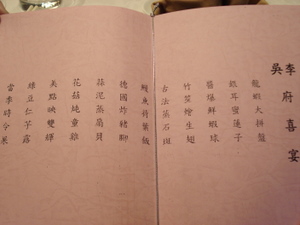 李府喜宴
吳
龍蝦大拼盤
銀耳蜜蓮子
醬爆鮮蝦球
竹笙燴生翅
古法蒸石斑
鰻魚荷葉飯
德國炸豬腳
蒜泥蒸扇貝
花菇燉童雞
美點映雙輝
雜豆仁芋露
當季時令果